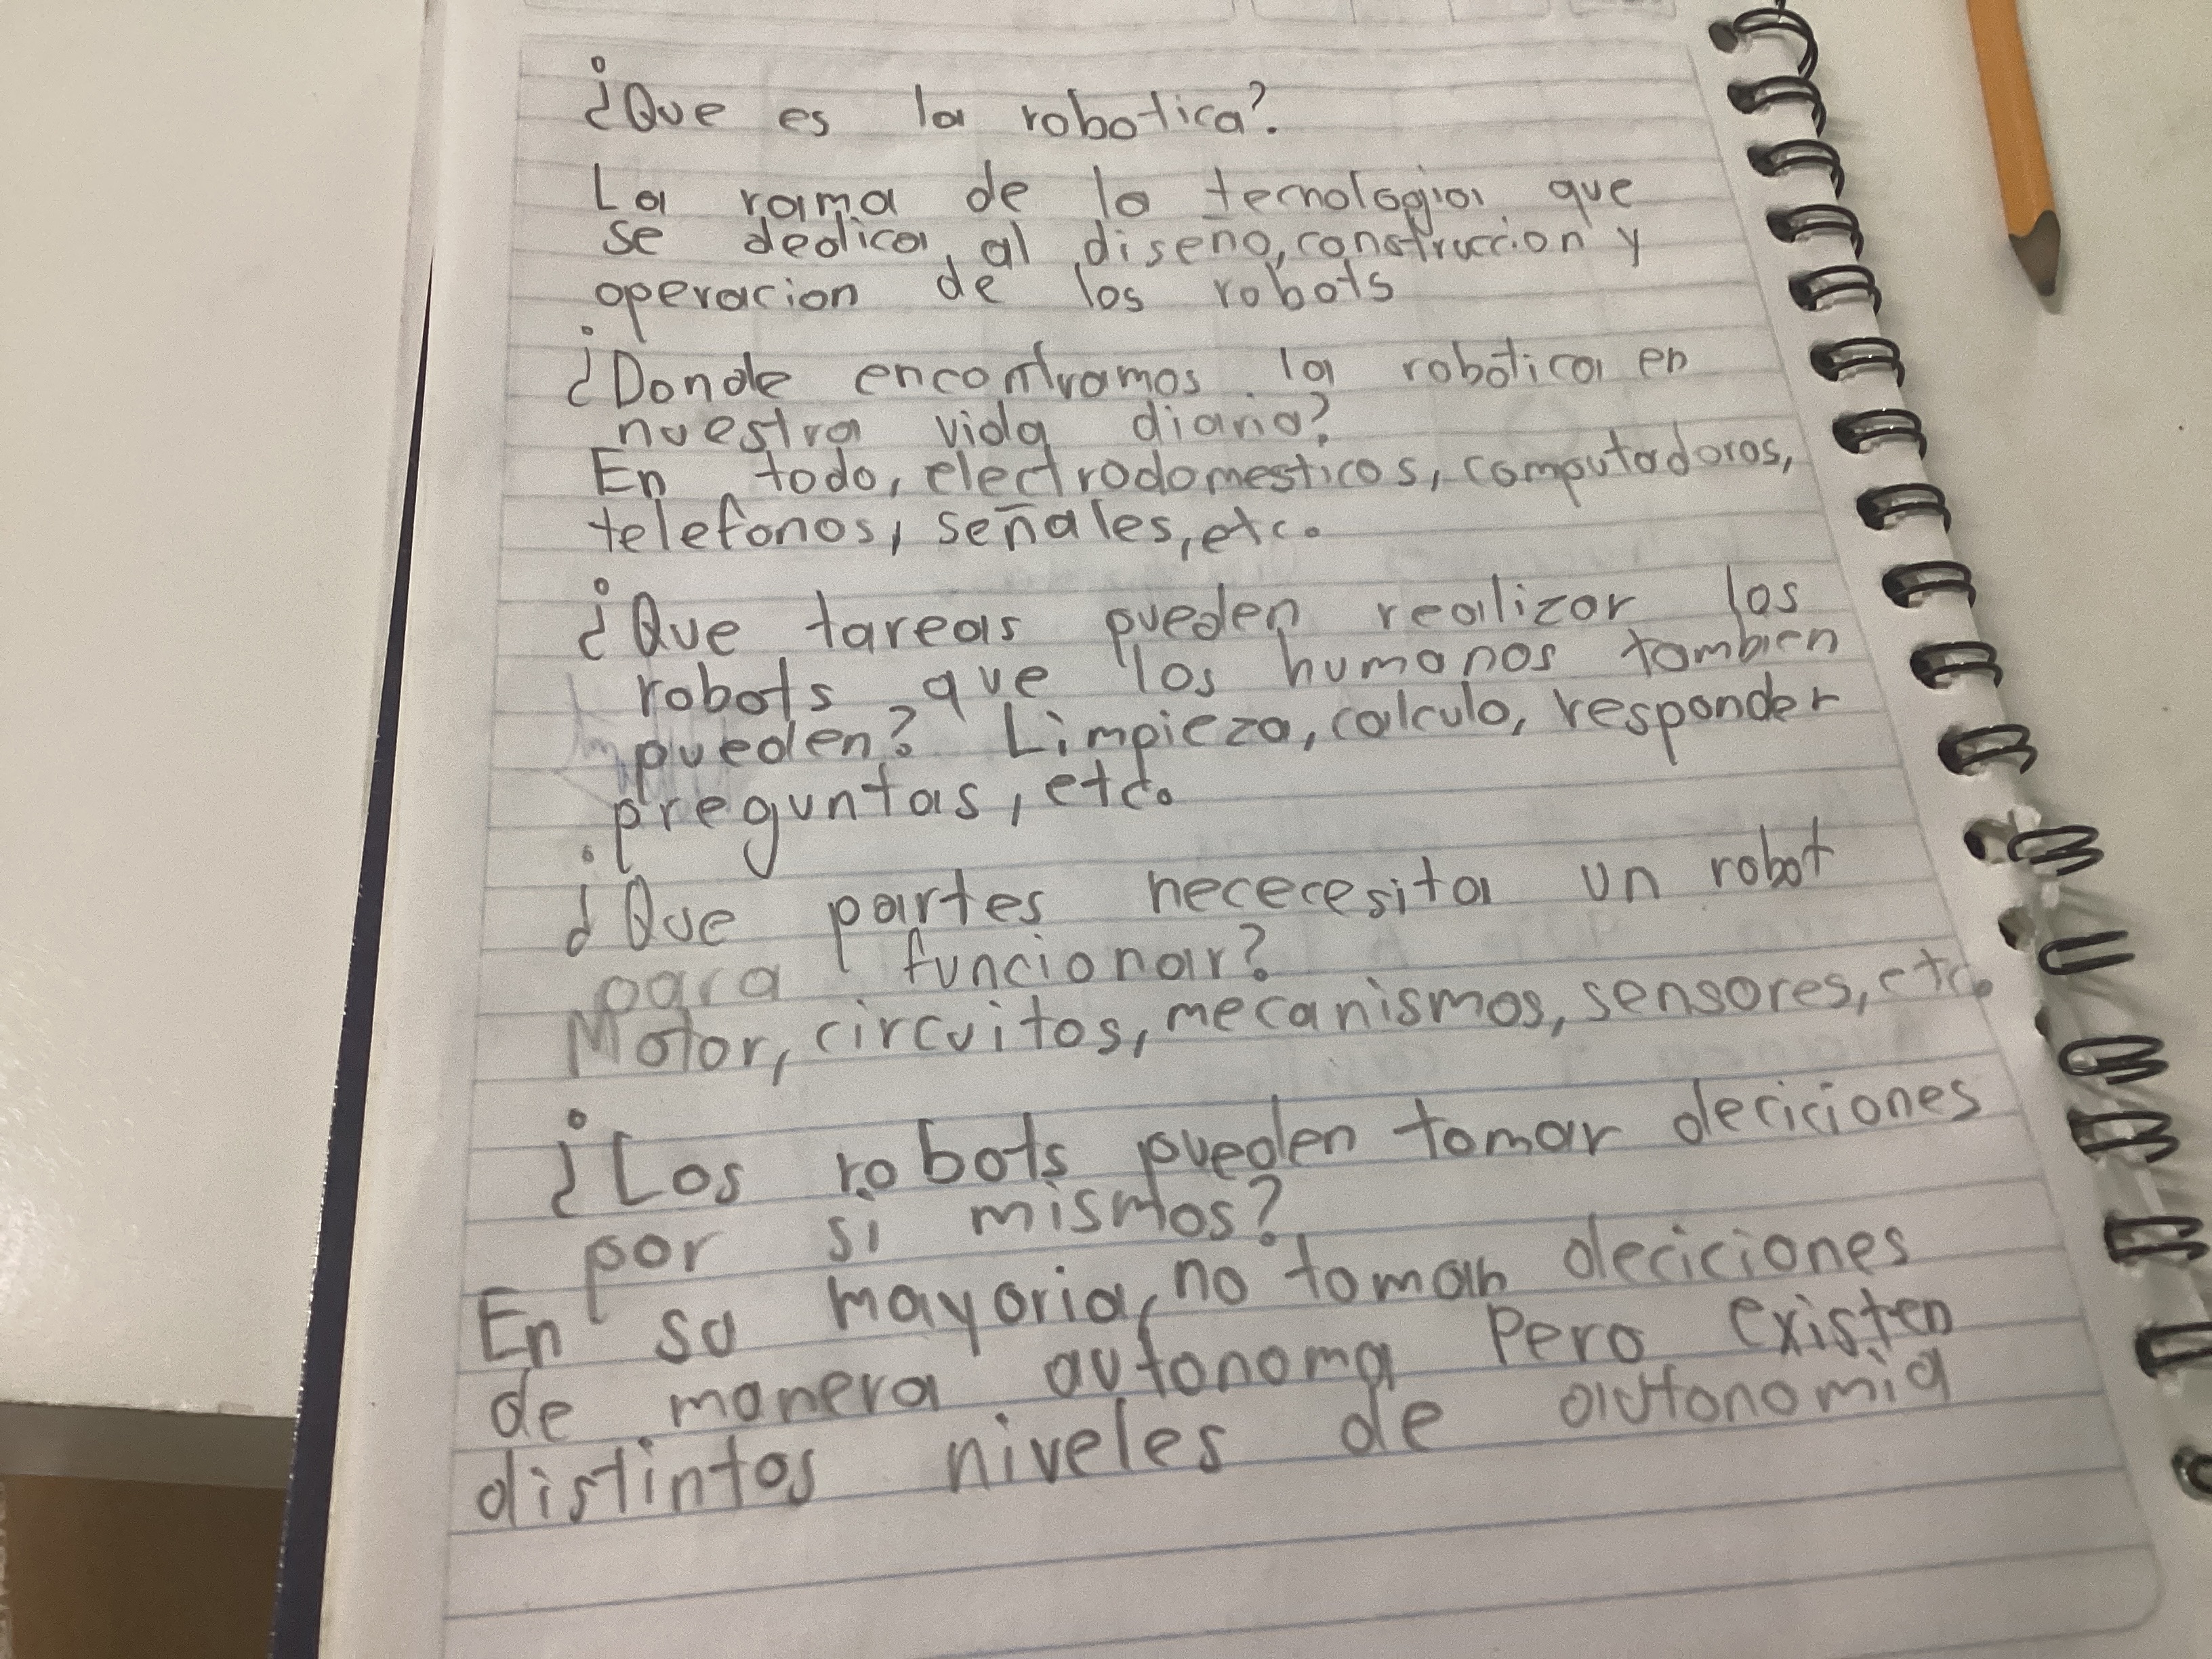 ¿Que es la robotica?
La rama de la tecnologia que
se dedica al diseño, construccion y
operacion de los robots
¿Donde encontramos la robotica en
nuestra vida diaria?
En todo, electrodomesticos, computadoras,
telefonos, señales, etc.
¿Que tareas pueden realizar los
robots que los humanos tambien
pueden? Limpieza, calculo, responder
preguntas, etc.
¿Que partes nececesita un robot
para funcionar?
Motor, circuitos, mecanismos, sensores, etc.
¿Los robots pueden tomar deciciones
por si mismos?
En su mayoria, no toman deciciones
de manera autonoma Pero existen
distintos niveles de autonomia